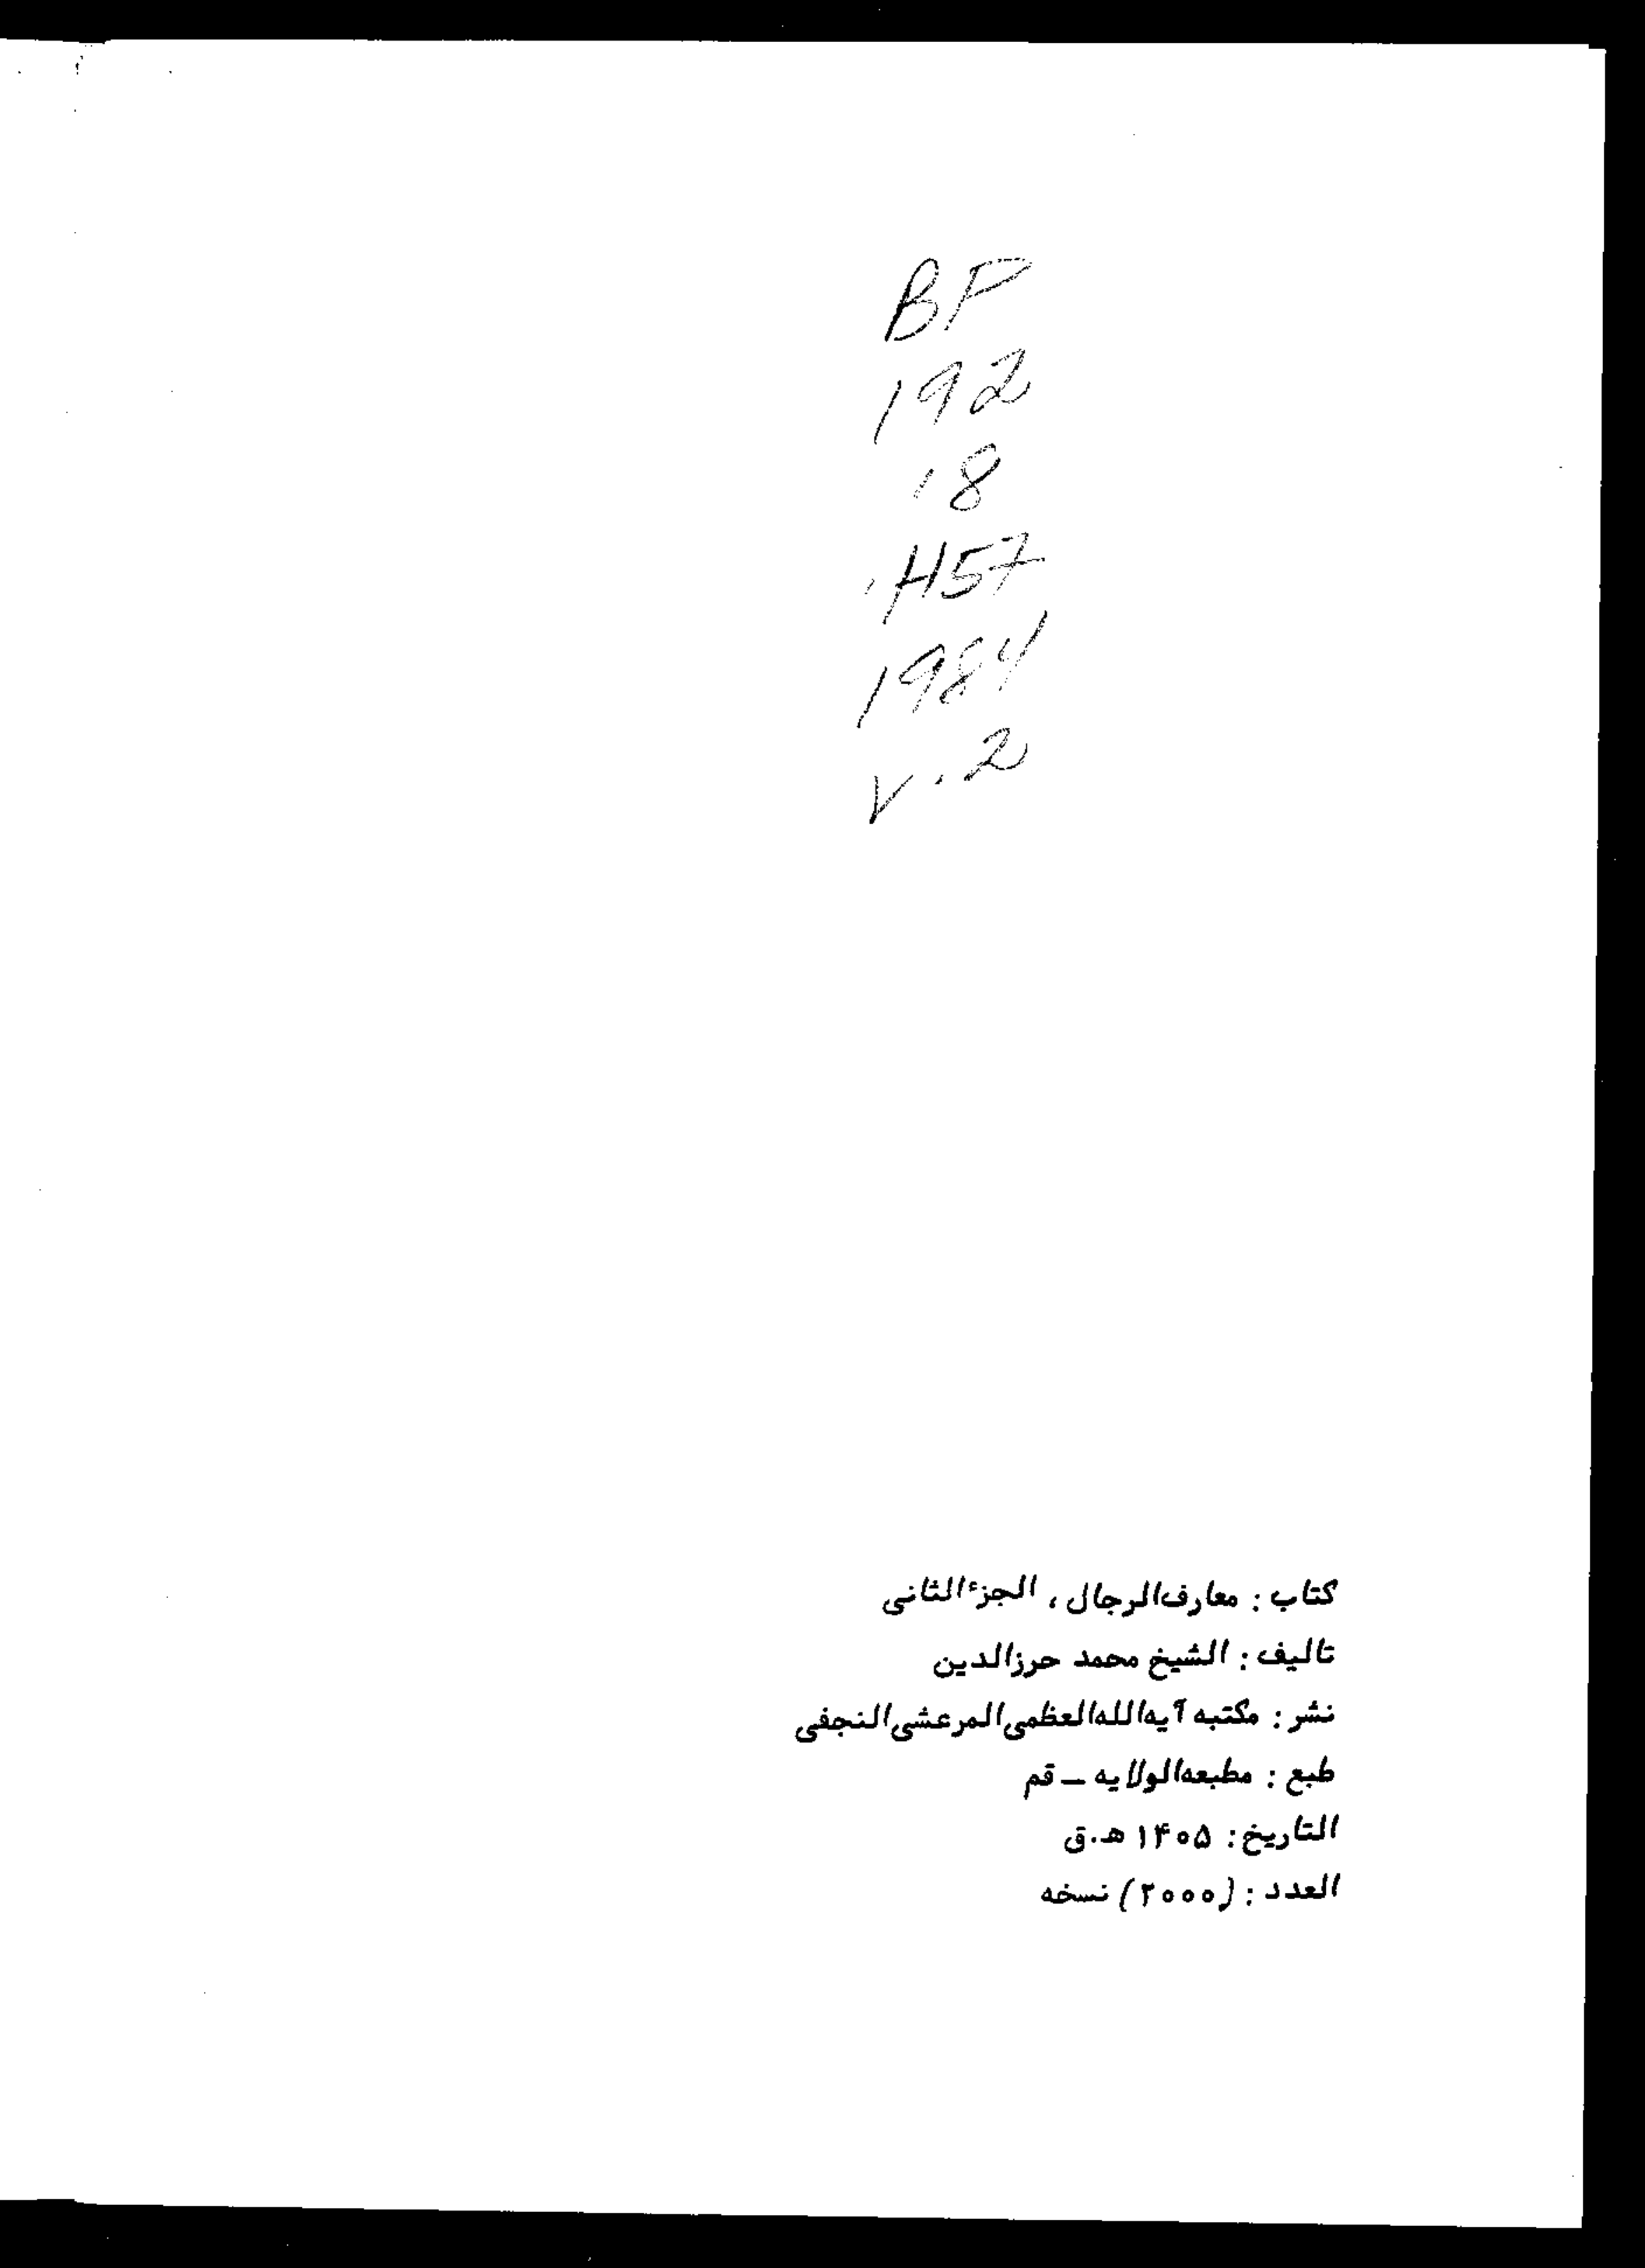 BP
192
.8
.H57
1984
v.2
کتاب : معارف‌الرجال ، الجزءالثانی
تالیف : الشیخ محمد حرزالدین
نشر : مکتبه آیه‌الله‌العظمی‌المرعشی‌النجفی
طبع : مطبعه‌الولایه – قم
التاریخ : ۱۴۰۵ ه‍.ق
العدد : (۲۰۰۰) نسخه